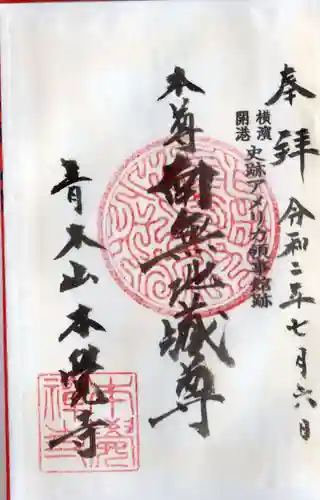 奉拝
令和二年七月六日
横濱
開港
史跡アメリカ領事館跡
本尊
南無地蔵尊
青木山本覺寺